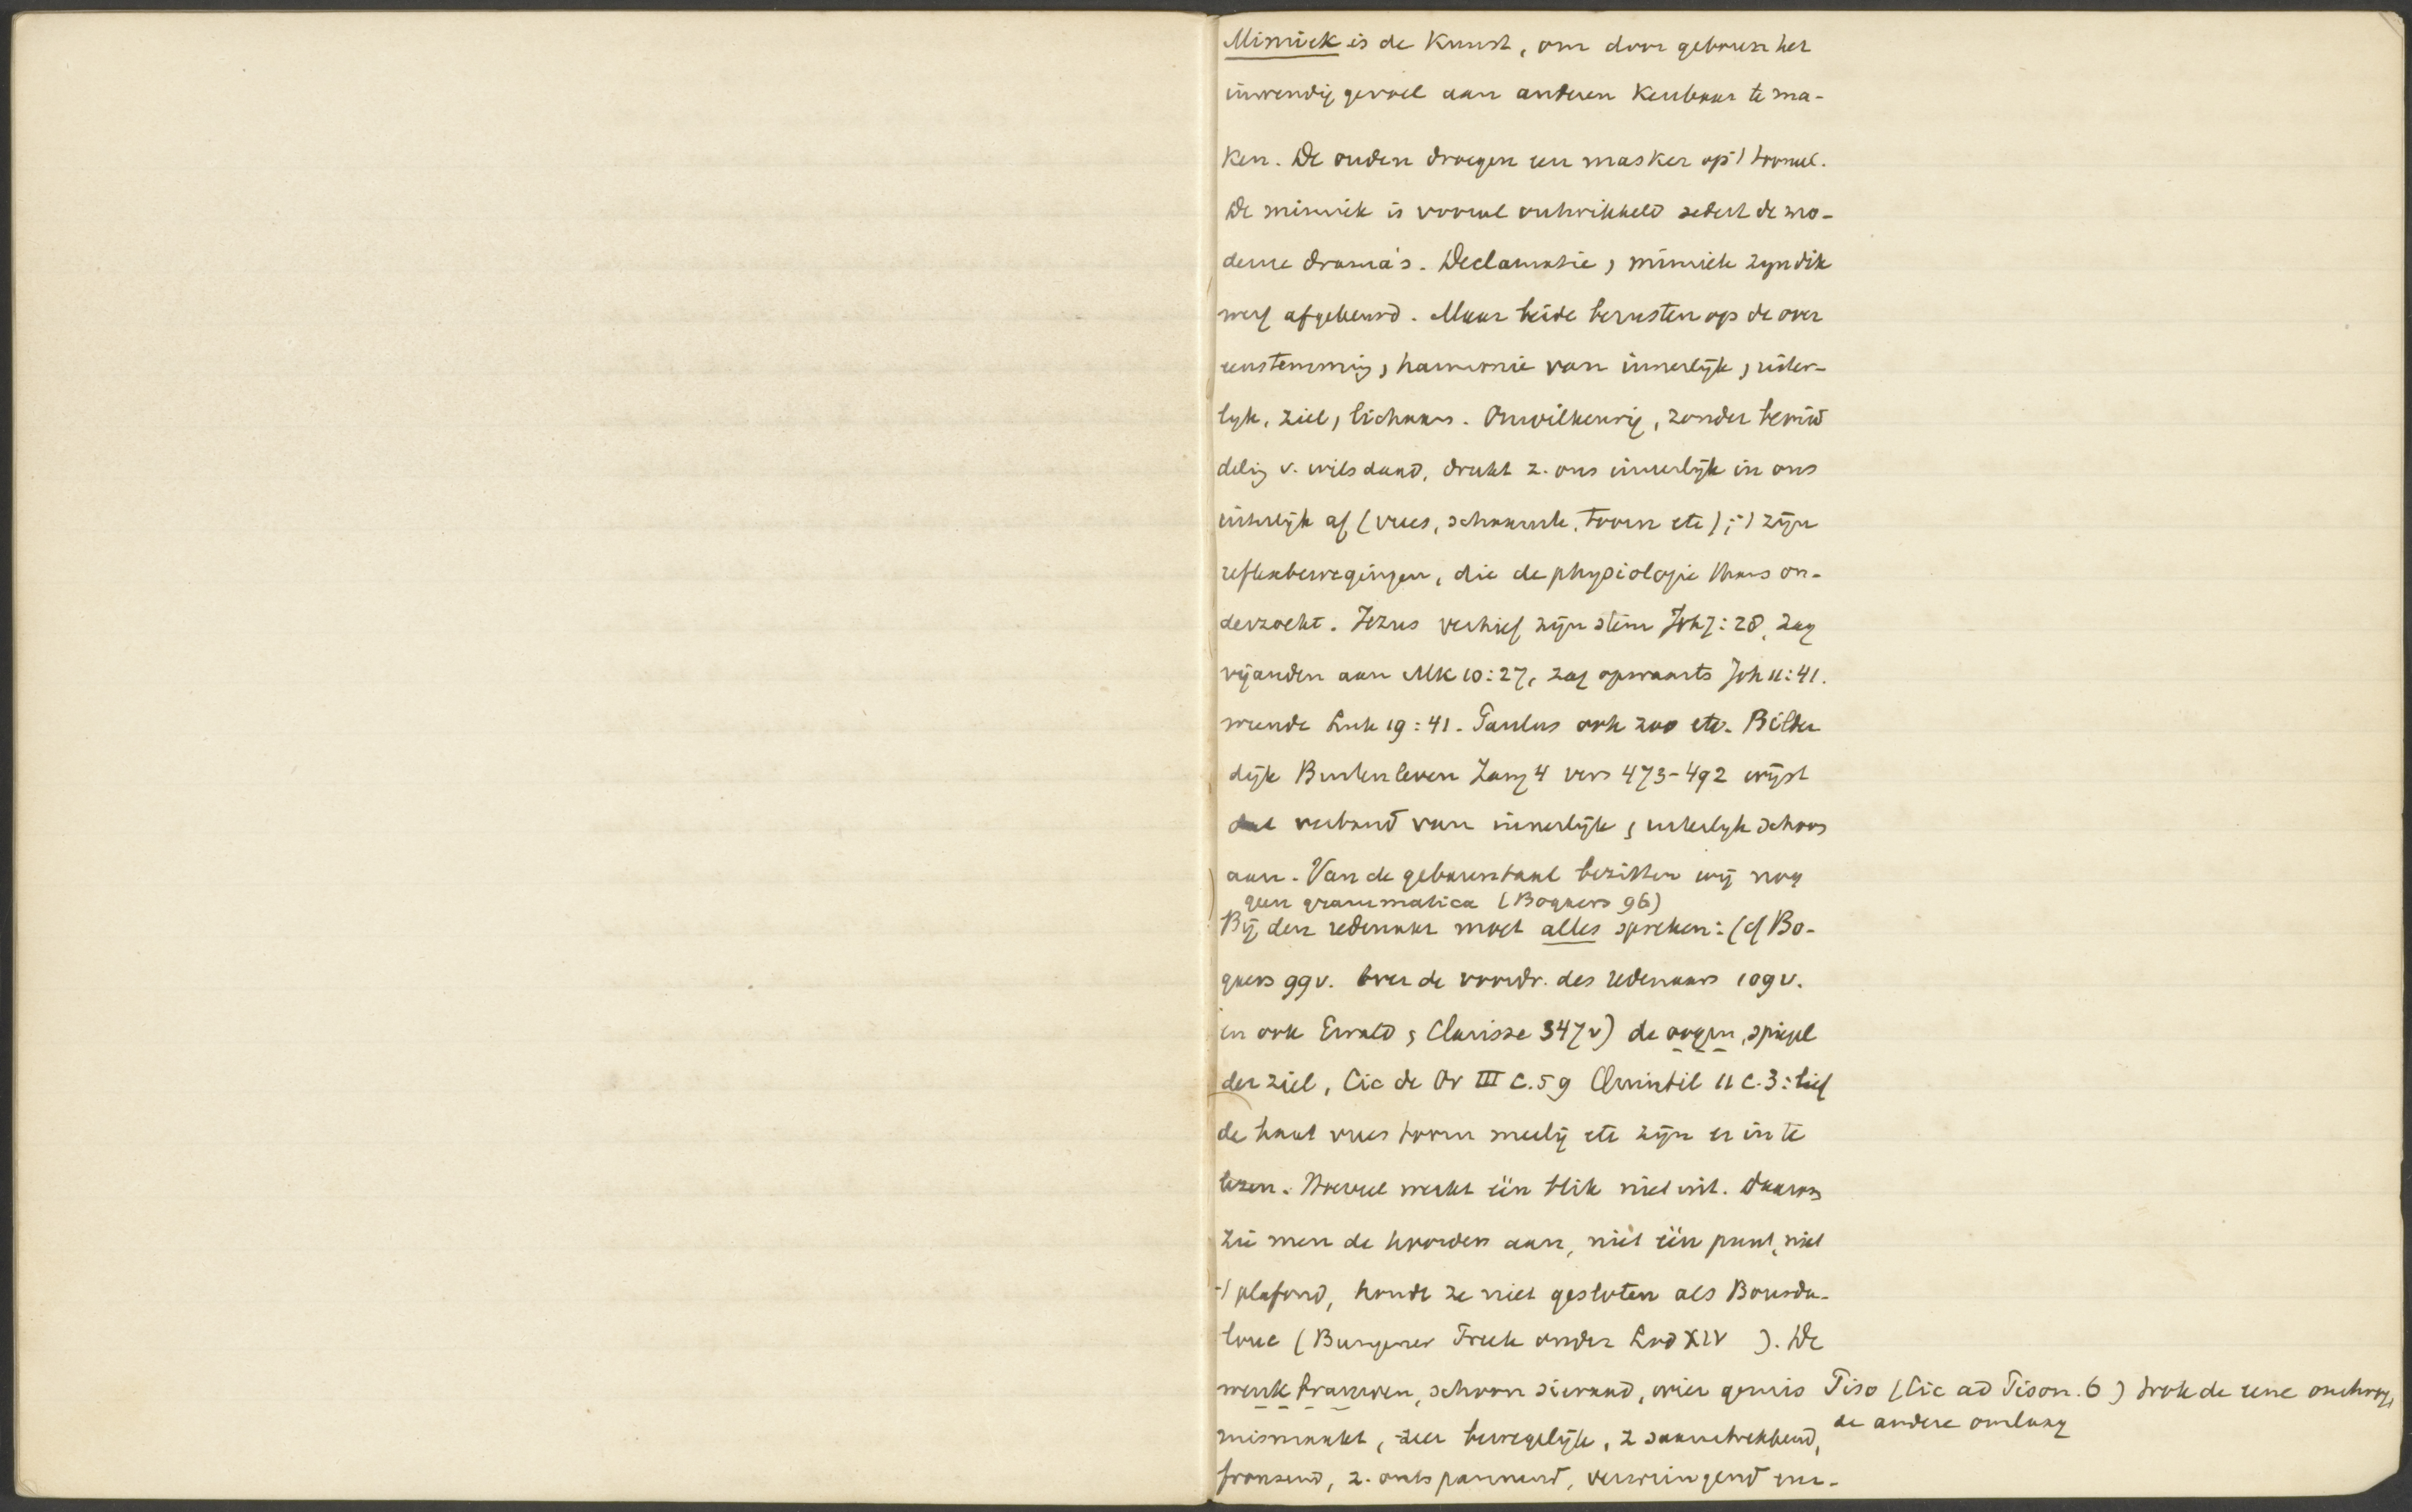 Mimiek is de Kunst, om door gebaren het
inwendig gevoel aan anderen Kenbaar te ma-
ken. De ouden droegen een masker op 't tooneel.
De mimiek is vooral ontwikkeld sedert de mo-
derne drama's. Declamatie, mimiek zyn dik
werf afgekeurd. Maar beide berusten op de over
eenstemmig, harmonie van innerlijk, uiter-
lyk, ziel, lichaam. Onwilkeurig, zonder bemid
delig v. wilsdaad, drukt z. ons innerlijk in ons
uiterlijk af (vrees, schaamte, toorn etc); 't zijn
reflexbewegingen, die de physiologie thans on-
derzoekt. Jezus verhief zijn stem Joh 7:28, zag
vijanden aan Mk 10:27, zag opwaarts Joh 11:41.
weende Luk 19:41. Paulus ook zoo etc. Bilder
dijk Buitenleven Zang 4 vers 473-492 wijst
dat verband van innerlijk, uiterlyk schoon
aan. Van de gebarentaal bezitten wij nog
geen grammatica (Bogaers 96)
Bij den redenaar moet alles spreken: (cf Bo-
gaers 99v. Over de voordr. des redenaars 109v.
en ook Ewald, Clarisse 347v) de oogen, spiegel
der ziel, Cic de Or III C.59 Quintil 11 c.3: lief
de haat vrees toorn meelij etc zijn er in te
lezen. Hoeveel werkt één blik niet uit. Daarom
zie men de hoorders aan, niet één punt, niet
't plafond, houde ze niet gesloten als Bourda-
loue (Bungener Freek onder Lod XIV ). De
wenkbrauwen, schoon sieraad, wier gemis Piso (Cic ad Pison. 6) trok de eene omhoog,
de andere omlaag
mismaakt, zeer bewegelijk, z saamtrekkend,
fronsend, z. ontspannend, verwringend